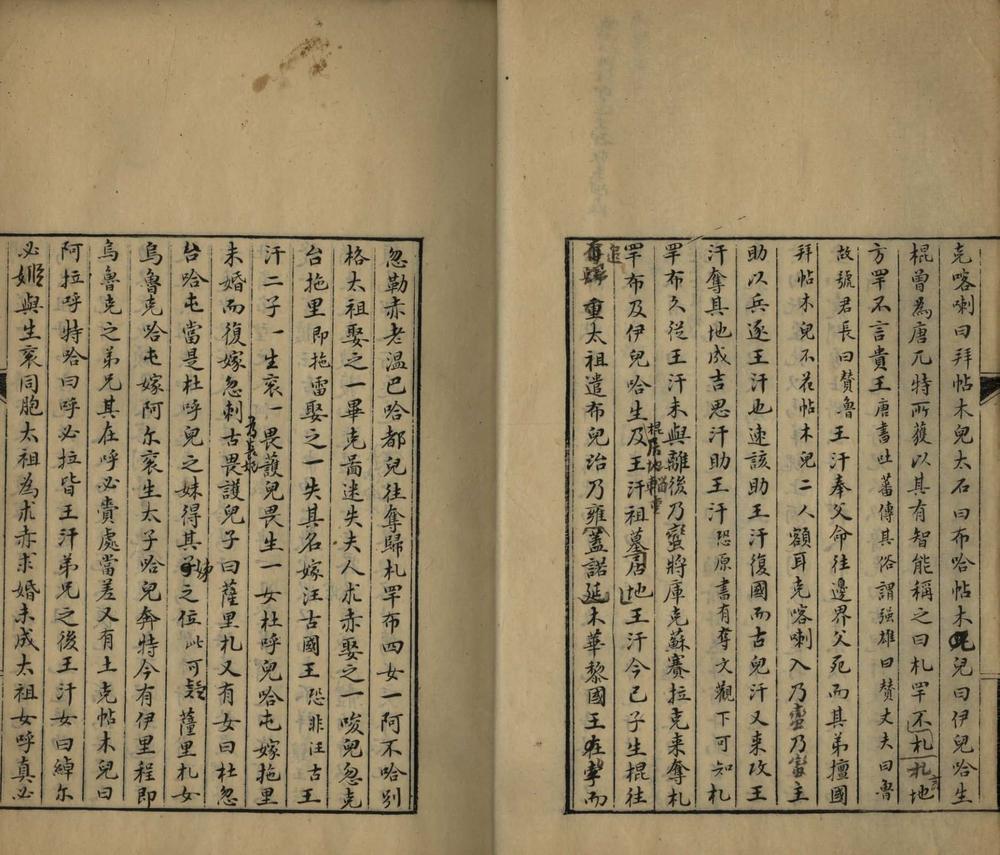 克喀喇曰拜帖木兒太石曰布哈帖木兒曰伊兒哈生
棍曾為唐兀特所獲以其有智能稱之曰札罕不札札地
方罕不言貴王唐書吐蕃傳其俗謂強雄曰贊丈夫曰魯
故號君長曰贊魯王汗奉父命往邊界父死而其弟擅國
拜帖木兒不花帖木兒二人額耳克喀喇入乃蠻乃蠻主
助以兵逐王汗也速該助王汗復國而古兒汗又來攻王
汗奪其地成吉思汗助王汗恐原書有奪文觀下可知札
罕布久從王汗未與離後乃蠻將庫克蘇賽拉克來奪札
罕布及伊兒哈生及王汗祖墓居地王汗令己子生棍往
追 重太祖遣布兒治乃雍蓋諾延木華黎國王 而
忽勒赤老溫巴哈都兒往奪歸札罕布四女一阿不哈別
格太祖娶之一畢克圖迷失夫人朮赤娶之一唆兒忽克
台拖里即拖雷娶之一失其名嫁汪古國王恐非汪古王
汗二子一生袞一畏護兒畏生一女杜呼兒哈屯嫁拖里
未婚而復嫁忽剌古畏護兒子曰薩里札又有女曰杜忽
台哈屯當是杜呼兒之妹得其姊之位此可疑薩里札女
烏魯克哈屯嫁阿尔袞生太子哈兒奔特今有伊里程即
烏魯克之弟兄其在呼必賚處當差又有土克帖木兒曰
阿拉呼特哈曰呼必拉皆王汗弟兄之後王汗女曰綽尔
必姬與生袞同胞太祖為朮赤求婚未成太祖女呼真必